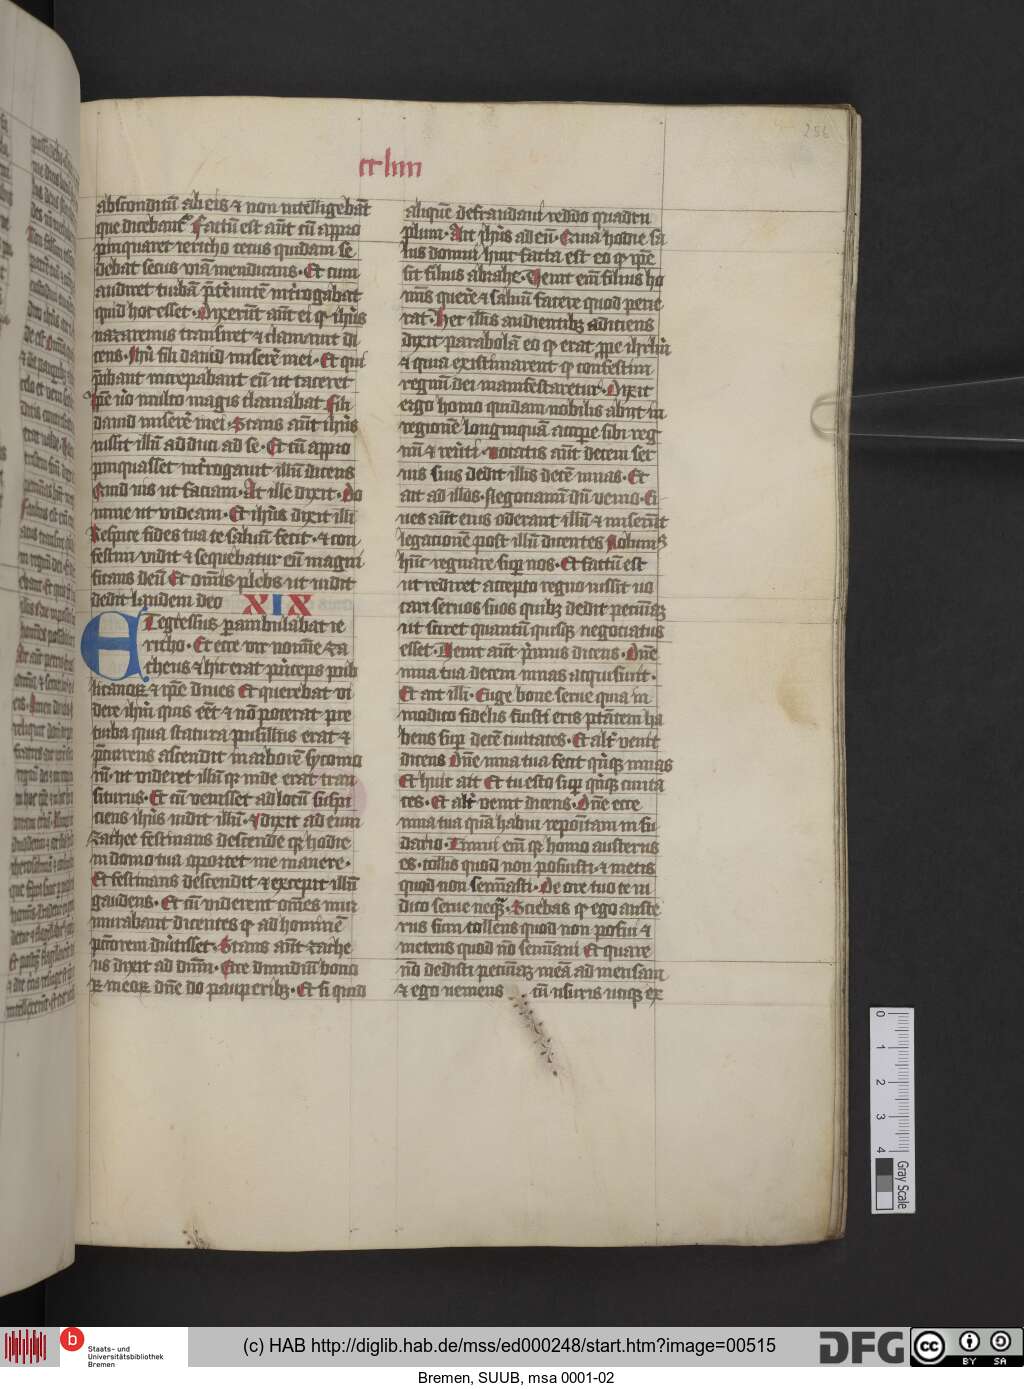 256
ccliiii
absconditū ab eis ⁊ non intelligebāt
que dicebant᷑ Factū est aūt cū appro
pinquaret iericho cecus quidam se
debat secus viā mendicans· Et cum
audiret turbā p̄tereuntē int̄rogabat
quid hoc esset· Dixerūt aūt ei ꝙ ih̄us
nazarenus transiret ⁊ clamauit di
cens· Ih̄u fili dauid miserē mei· Et qui
p̄ibant increpabant eū ut taceret
Ip̄e uͦo multo magis clamabat Fili
dauid miserē mei· Stans aūt ih̄us
iussit illū adduci ad se· Et cū appro
pinquasset int̄rogauit illū dicens
Quid uis ut faciam· At ille dixit· Do
mine ut videam· Et ih̄us dixit illi
Respice fides tua te saluū fecit· ⁊ con
festim vidit ⁊ sequebatur eū magni
ficans deū Et om̄is plebs ut uidit
dedit laudem deo XIX
ET egressus ꝑambulabat ie
richo· Et ecce vir noīe za
cheus ⁊ hic erat p̄nceps pub
licanoꝝ ⁊ ip̄e diues Et querebat vi
dere ih̄m quis eēt ⁊ nō poterat pre
turba quia statura pusillus erat ⁊
p̄currens ascendit in arborē sycomo
rū· ut videret illū qꝛ inde erat tran
siturus· Et cū venisset ad locū suspi
ciens ih̄us uidit illū· ⁊ dixit ad eum
Zachee festinans descende qꝛ hodie
in domo tua oportet me manere·
Et festinans descendit ⁊ excepit illū
gaudens· Et cū viderent om̄es mur
murabant dicentes ꝙ ad hominē
pc̄corem diu̅tisset· Stans aūt zache
us dixit ad dn̄m· Ecce dimidiū bono
ꝝ meoꝝ dn̄e do pauperibꝫ· Et si quid
aliquē defraudaui reddo quadru
plum· Ait ih̄us ad eū· Quia hodie sa
lus domui huic facta est eo ꝙ ip̄e
sit filius abrahe· Uenit eni̅ filius ho
minis querē ⁊ saluū facere quod perie
rat· Hec illis audientibꝫ adiciens
dixit parabolā eo ꝙ erat ꝓpe ih̄rlm̄
⁊ quia existimarent ꝙ confestim
regnū dei manifestaretur· Dixit
ergo homo quidam nobilis abiit in
regionē longinquā acciꝑe sibi reg
nū ⁊ reūti· Uocatis aūt decem ser
uis suis dedit illis decē mnas· Et
ait ad illos· Negociamī dū venio· Ci
ues aūt eius oderant illū ⁊ miserūt
legationē post illū dicentes Nolumꝰ
hūc regnare suꝑ nos· Et factū est
ut rediret accepto regno iussit uo
cari seruos suos quibꝫ dedit pecuniā
ut sciret quantū quisqꝫ negociatus
esset· Uenit aūt p̄mus dicens· Dn̄e
mna tua decem mnas acquisiuit·
Et ait illi· Euge bone serue quia in
modico fidelis fuisti eris ptātem ha
bens suꝑ decē ciuitates· Et alt̄ venit
dicens Dn̄e mna tua fecit quīqꝫ mnas
Et huic ait Et tu esto suꝑ quīqꝫ ciuita
tes· Et alt̄ venit dicens· Dn̄e ecce
mna tua quā habui repositam in su
dario· Timui eni̅ qꝛ homo austerus
es· tollis quod non posuisti· ⁊ metis
quod non semīasti· De ore tuo te iu
dico serue neqꝫ· Sciebas ꝙ ego auste
rus sum tollens quod non posui ⁊
metens quod nō semīaui Et quare
nō dedisti pecuniā meā ad mensam
⁊ ego ueniens cū usuris utiqꝫ ex
0 1 2 3 4
Gray Scale
b Staats- und
Universitätsbibliothek
Bremen
(c) HAB http://diglib.hab.de/mss/ed000248/start.htm?image=00515
DFG
cc BY SA
Bremen, SUUB, msa 0001-02